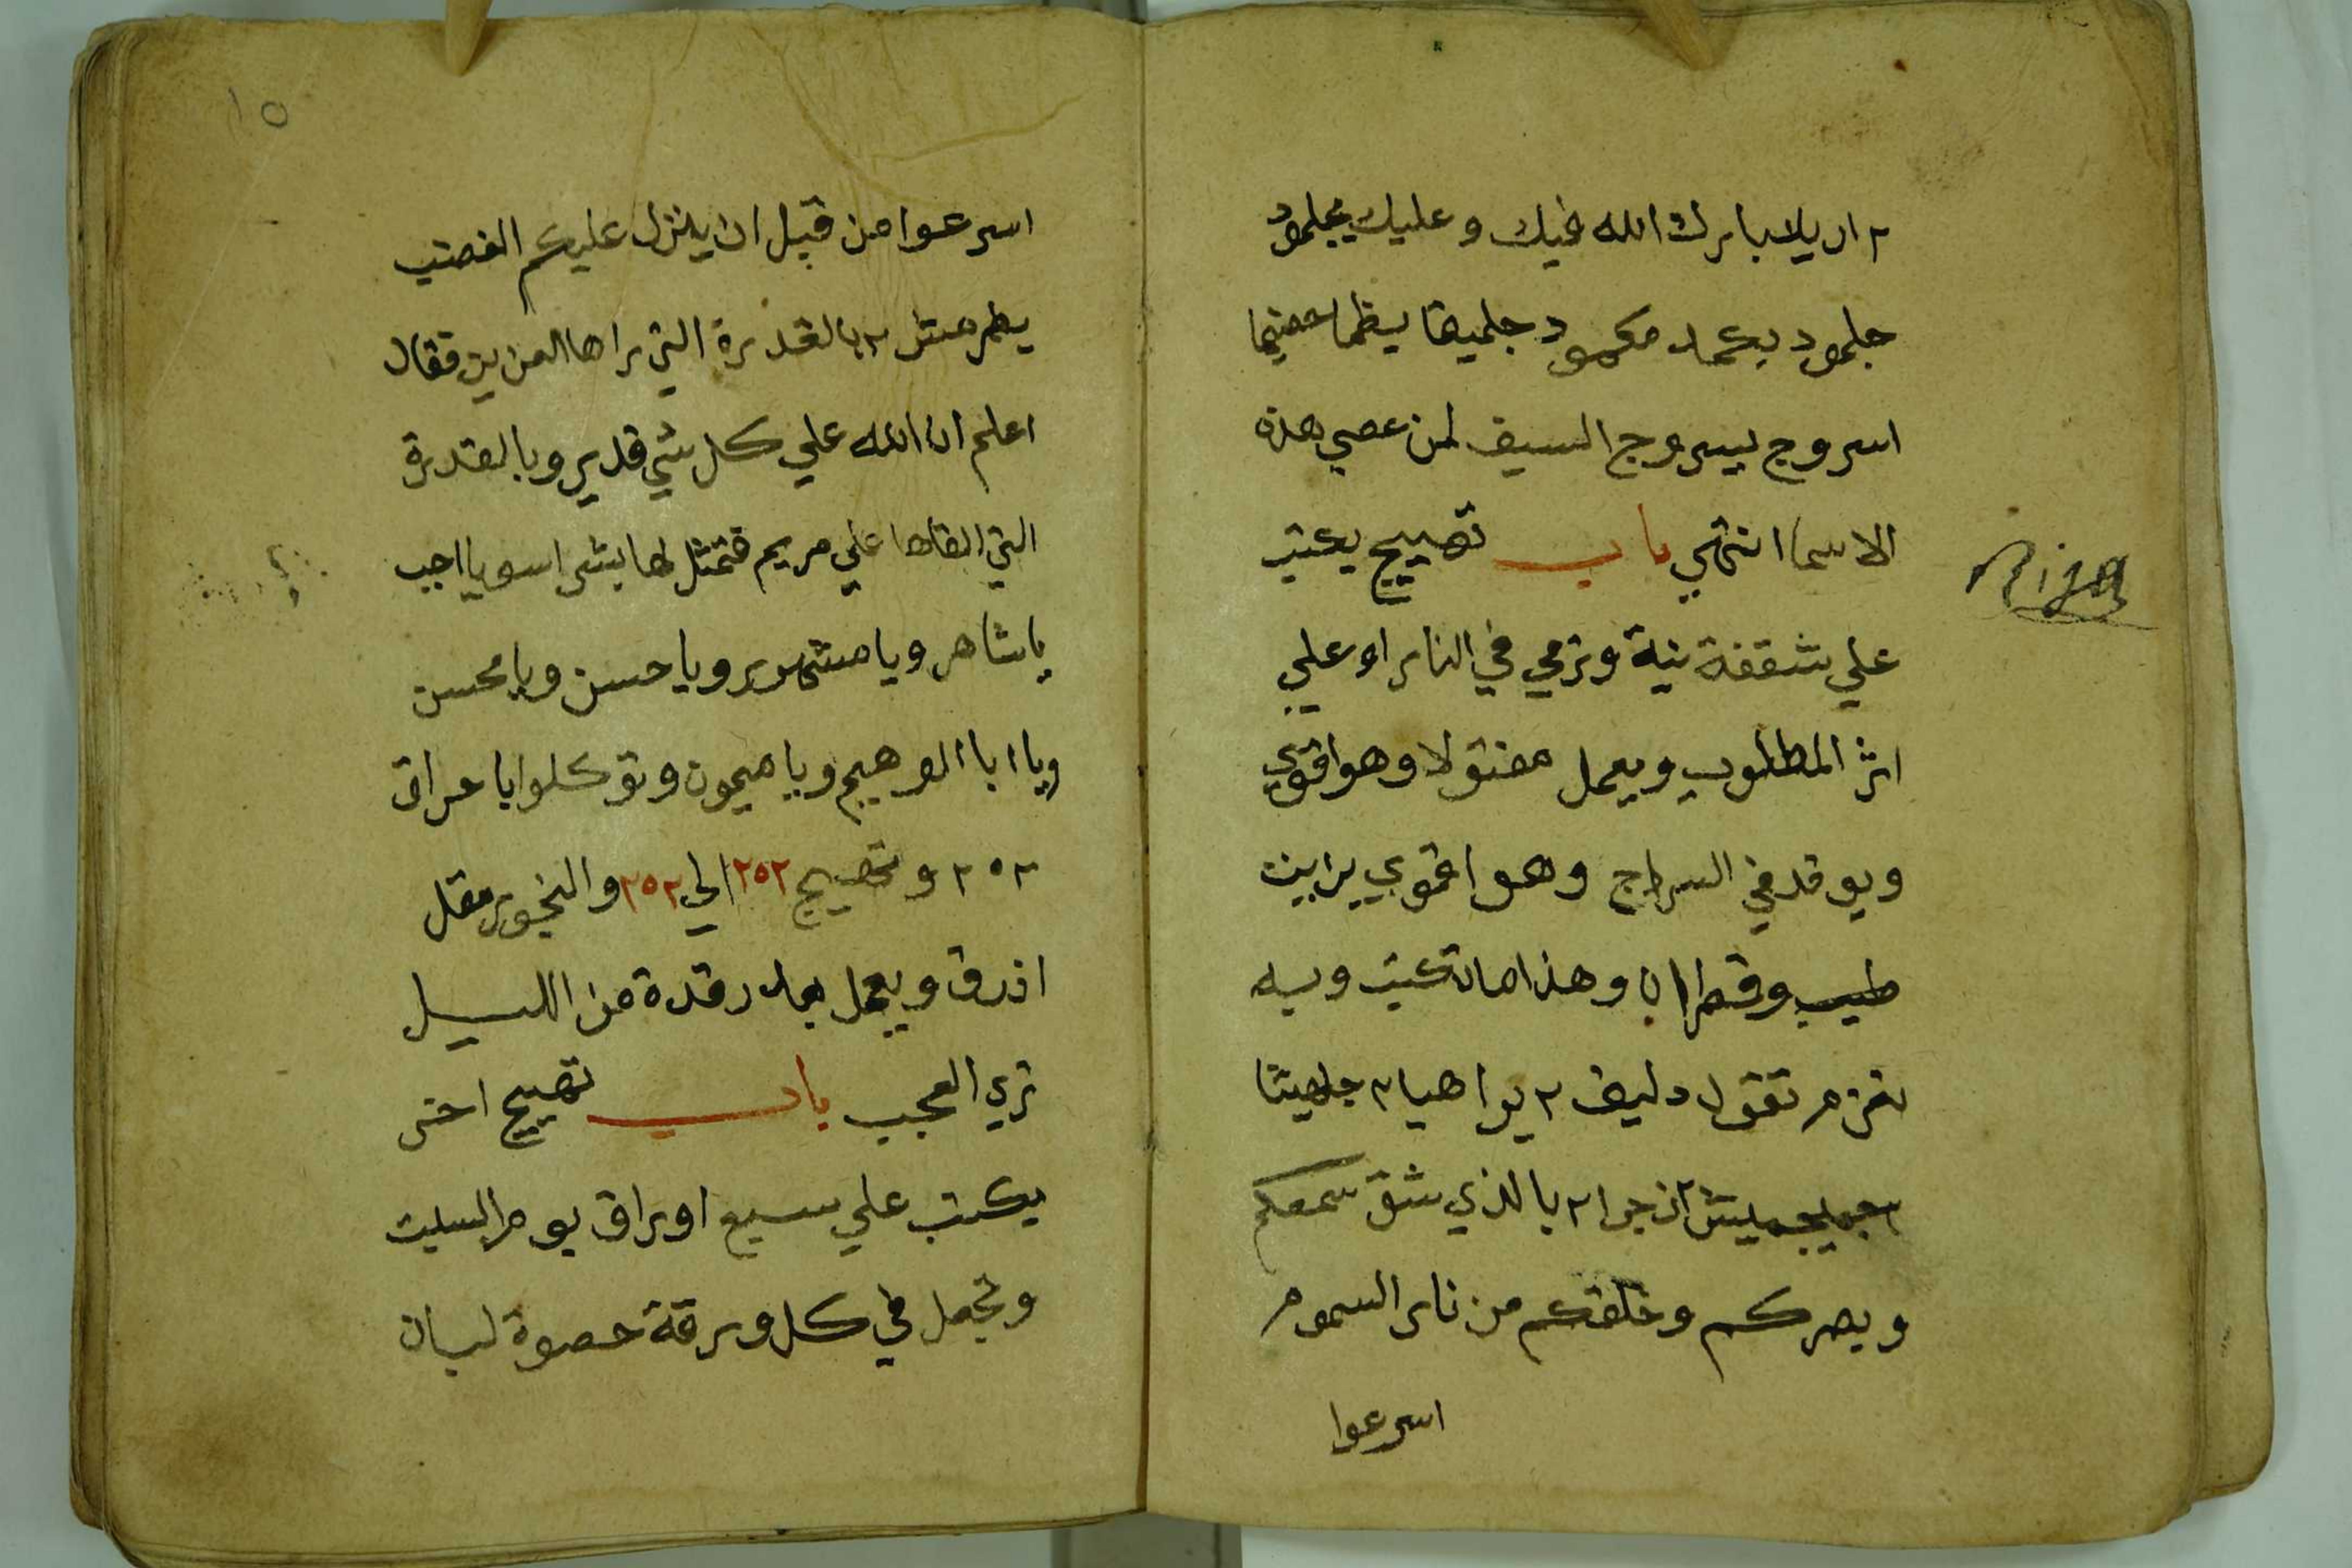 ٢ اريلا بارك الله فيك وعليك بجلمود
جلمود بكمد مكمود جلميقا يظما حضيما
اسروج بيسروج السيف لمن عصي هذه
الاسما انتهي باب تهييج يكتب
علي شقفة نية وترمي في النار او علي
اثر المطلوب ويعمل مفتولا وهو اقوي
ويوقد في السراج وهو اقوي بزيت
طيب وقطران وهذا ما تكتب وبه
تعزم تقول دليف ٢ يواهيا ٢ جلهيتا
ازجرا ٢ بالذي شق سمعكم
وبصركم وخلقكم من نار السموم
اسرعوا
١٥
اسرعوا من قبل ان ينزل عليكم الغضب
٢ بالقدرة التي راها العزيز فقال
اعلم ان الله علي كل شي قدير وبالقدرة
التي القاها علي مريم فتمثل لها بشرا سويا اجب
يا شاهر ويا مشهور ويا حسن ويا محسن
ويا ابا الوهيم ويا ميمون وتوكلوا با عراق
٢٥٢ وتهييج ٢٥٢ الي ٢٥٢ والبخور مقل
ازرق ويعمل بعد رقدة من الليل
تري العجب باب تهييج اخر
يكتب علي سبع اوراق يوم السبت
وتجعل في كل ورقة حصوة لبان